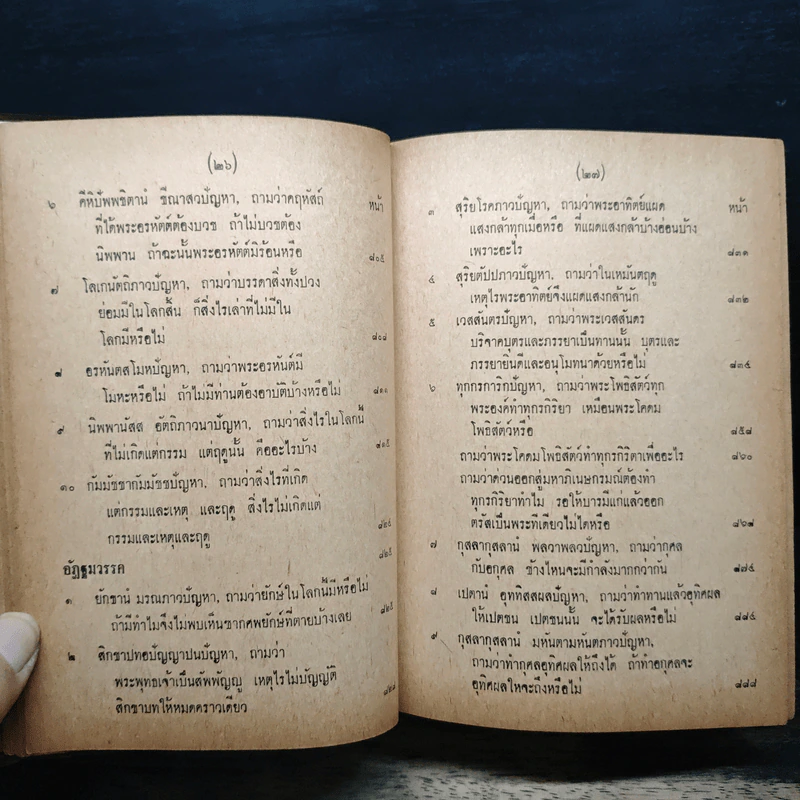 (๒๖)
๖ คีหิปัพพชิตานํ ขีณาสวปัญหา, ถามว่าคฤหัสถ์ หน้า
ที่ได้พระอรหัตต์ต้องบวช ถ้าไม่บวชต้อง
นิพพาน ถ้าฉะนั้นพระอรหัตต์มิร้อนหรือ ๘๐๕
๗ โลเกนัตถิภาวปัญหา, ถามว่าบรรดาสิ่งทั้งปวง
ย่อมมีในโลกสิ้น ก็สิ่งไรเล่าที่ไม่มีใน
โลกมีหรือไม่ ๘๐๘
๘ อรหันตสโมหปัญหา, ถามว่าพระอรหันต์มี
โมหะหรือไม่ ถ้าไม่มีท่านต้องอาบัติบ้างหรือไม่ ๘๑๑
๙ นิพพานัสส อัตถิภาวนาปัญหา, ถามว่าสิ่งไรในโลกนี้
ที่ไม่เกิดแต่กรรม แต่ฤดูนั้น คืออะไรบ้าง ๘๑๕
๑๐ กัมมัชชากัมมัชชปัญหา, ถามว่าสิ่งที่เกิด
แต่กรรมและเหตุ และฤดู สิ่งไรไม่เกิดแต่
กรรมและเหตุและฤดู ๘๒๔
อัฏฐมวรรค ๘๒๕
๑ ยักขานํ มรณภาวปัญหา, ถามว่ายักษ์ในโลกนี้มีหรือไม่
ถ้ามีทำไมจึงไม่พบเห็นซากศพยักษ์ที่ตายบ้างเลย ๘๒๕
๒ สิกขาปทอปัญญาปนปัญหา, ถามว่า
พระพุทธเจ้าเป็นสัพพัญญู เหตุไรไม่บัญญัติ
สิกขาบทให้หมดคราวเดียว
(๒๗)
๓ สุริยโรคภาวปัญหา, ถามว่าพระอาทิตย์แผด หน้า
แสงกล้าทุกเมื่อหรือ ที่แผดแสงกล้าบ้างอ่อนบ้าง
เพราะอะไร ๘๓๑
๔ สุริยตัปปภาวปัญหา, ถามว่าในเหมันตฤดู
เหตุไรพระอาทิตย์จึงแผดแสงกล้านัก ๘๓๒
๕ เวสสันตรปัญหา, ถามว่าพระเวสสันดร
บริจาคบุตรและภรรยาเป็นทานนั้น บุตรและ
ภรรยายินดีและอนุโมทนาด้วยหรือไม่ ๘๓๔
๖ ทุกกรการิกปัญหา, ถามว่าพระโพธิสัตว์ทุก
พระองค์ทำทุกรกิริยา เหมือนพระโคดม
โพธิสัตว์หรือ ๘๕๘
ถามว่าพระโคดมโพธิสัตว์ทำทุกรกิริตาเพื่ออะไร ๘๖๐
ถามว่าด่วนออกสู่มหาภิเนษกรมณ์ต้องทำ
ทุกรกิริยาทำไม รอให้บารมีแก่แล้วออก
ตรัสเป็นพระทีเดียวไม่ได้หรือ
๗ กุสลากุสลานํ พลวาพลวปัญหา, ถามว่ากุศล
กับอกุศล ข้างไหนจะมีกำลังมากกว่ากัน ๘๗๕
๘ เปตานํ อุททิสสผลปัญหา, ถามว่าทำทานแล้วอุทิศผล
ให้เปตชน เปตชนนั้น จะได้รับผลหรือไม่ ๘๘๔
๙ กุสลากุสลานํ มหันตามหันตภาวปัญหา,
ถามว่าทำกุศลอุทิศผลให้ถึงได้ ถ้าทำอกุศลจะ
อุทิศผลให้จะถึงหรือไม่ ๘๘๘